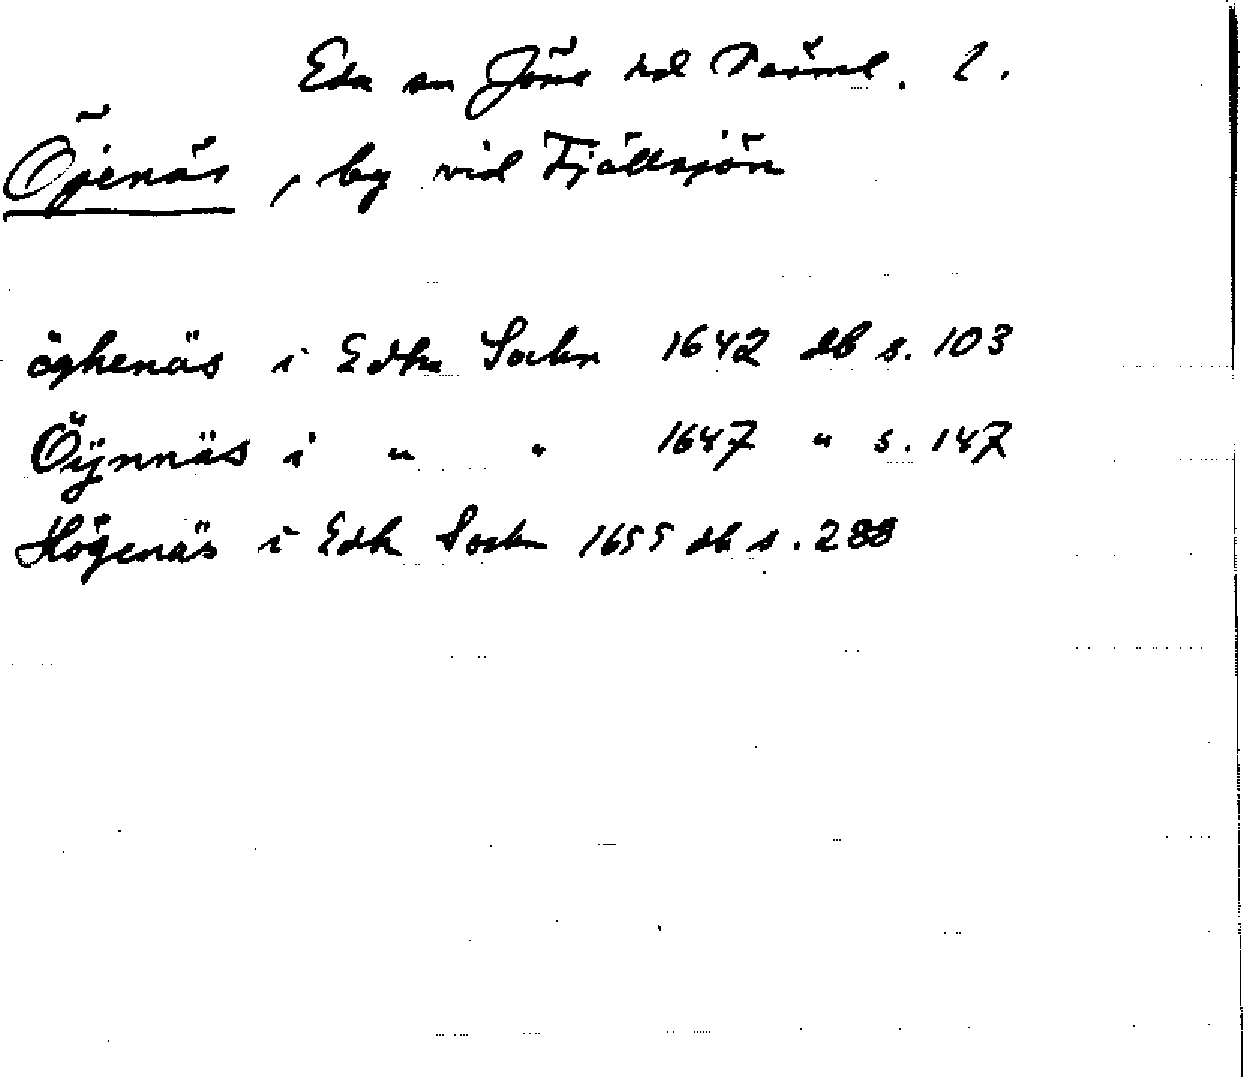 Eda sn Jöns hd Värml. l.
Öjenäs, by vid Fjällsjön
öghenäs i Edh Sochn 1642 db s. 103
Öijnnäs i " " 1647 " s. 147
Högenäs i Edh Sochn 1655 db s. 288